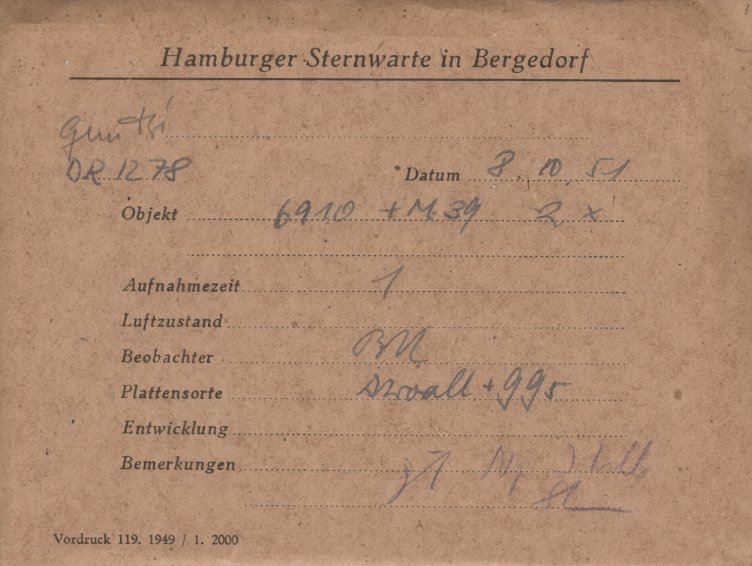 Hamburger Sternwarte in Bergedorf
DR 1278
Datum 8. 10. 51
Objekt 6910 + M 39 2 x
Aufnahmezeit 1
Luftzustand
Beobachter
Plattensorte + 995
Entwicklung
Bemerkungen
Vordruck 119. 1949 / 1. 2000